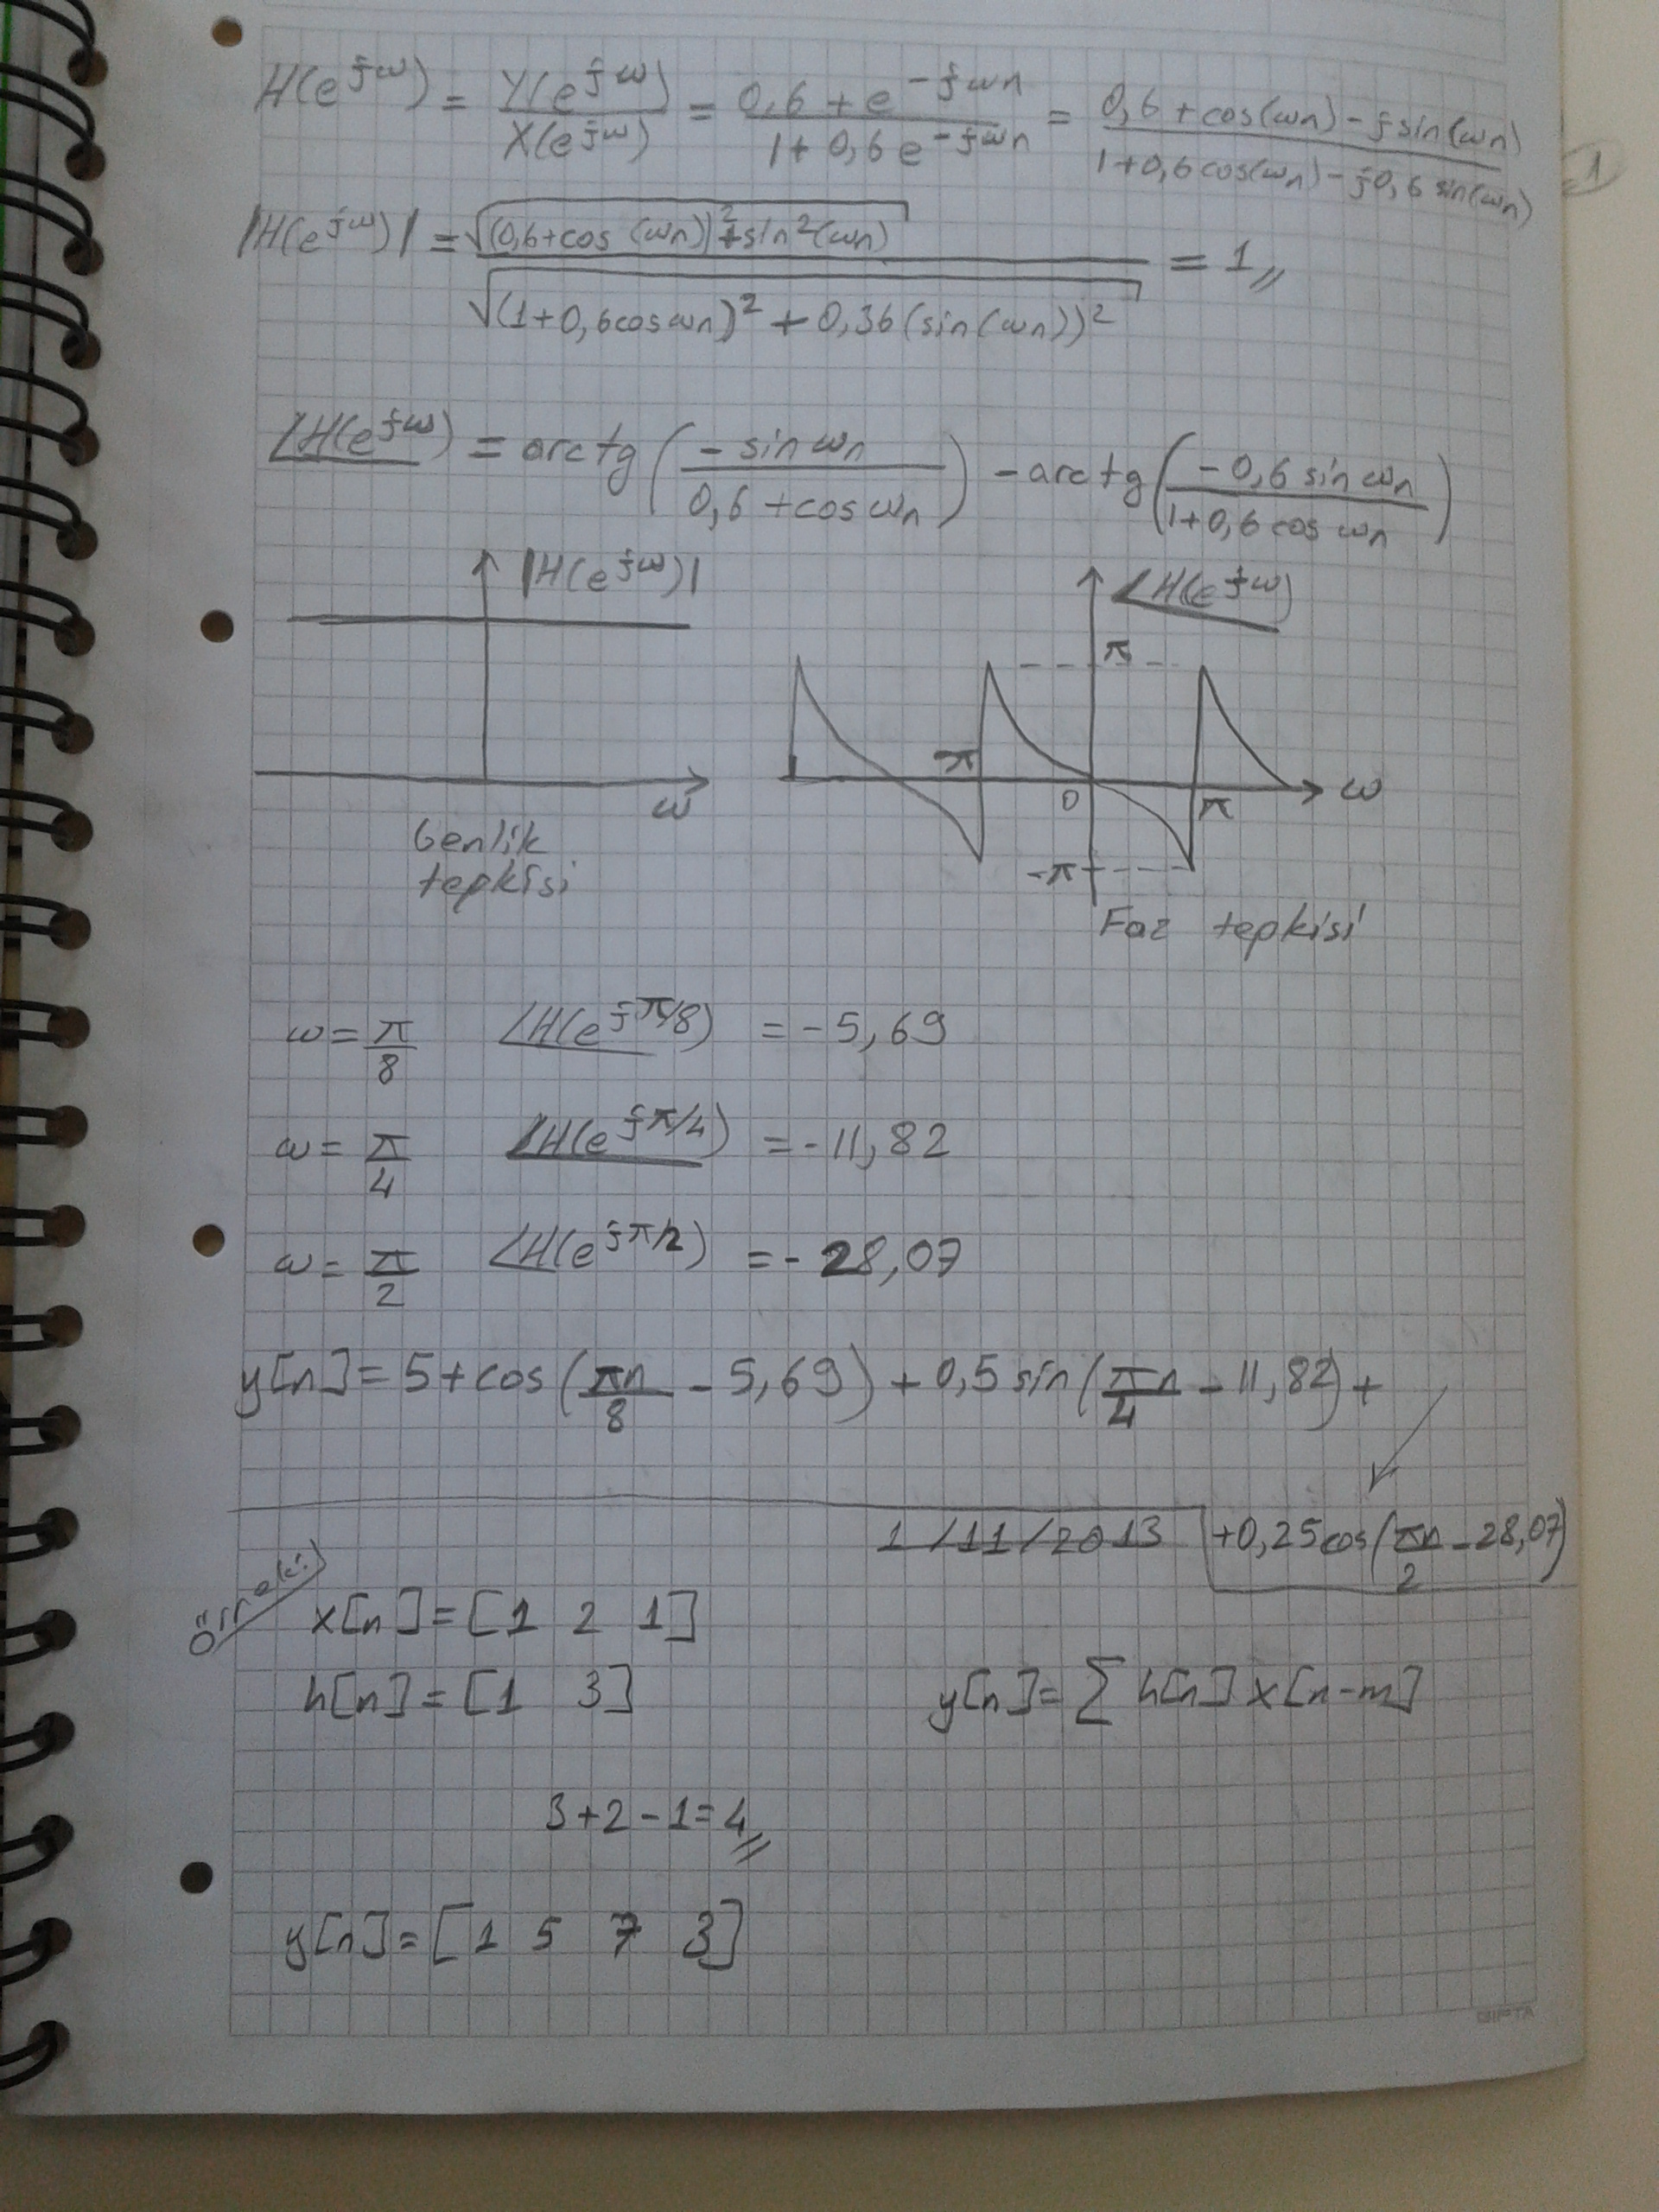 H(e^jω) = Y(e^jω)/X(e^jω) = (0,6 + e^-jωn)/(1 + 0,6 e^-jωn) = (0,6 + cos(ωn) - j sin(ωn))/(1 + 0,6 cos(ωn) - j0,6 sin(ωn))
1
|H(e^jω)| = √((0,6 + cos(ωn))^2 + sin^2(ωn)) / √((1 + 0,6 cos ωn)^2 + 0,36 (sin(ωn))^2) = 1 //
∠H(e^jω) = arctg(-sin ωn/(0,6 + cos ωn)) - arctg(-0,6 sin ωn/(1 + 0,6 cos ωn))
|H(e^jω)|
ω
Genlik
tepkisi
∠H(e^jω)
π
-π 0 π ω
-π
Faz tepkisi
ω = π/8 ∠H(e^jπ/8) = -5,69
ω = π/4 ∠H(e^jπ/4) = -11,82
ω = π/2 ∠H(e^jπ/2) = -28,07
y[n] = 5 + cos(πn/8 - 5,69) + 0,5 sin(πn/4 - 11,82) +
+0,25 cos(πn/2 - 28,07)
1/11/2013
Örnek:
x[n] = [1 2 1]
h[n] = [1 3] y[n] = Σ h[n] x[n-m]
3+2-1=4 //
y[n] = [1 5 7 3]
GIPTA